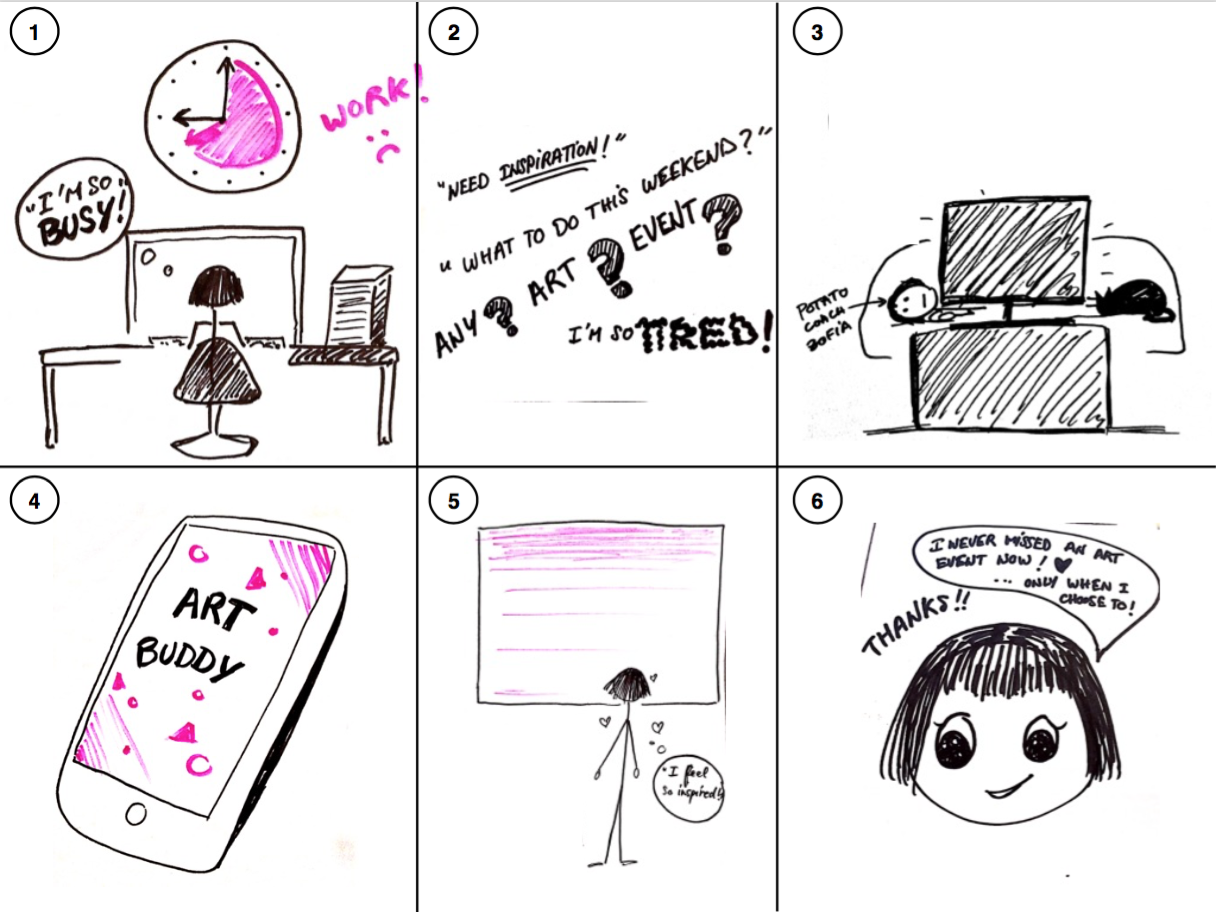 1
WORK!
"I'M SO
BUSY!"
2
"NEED INSPIRATION!"
"WHAT TO DO THIS WEEKEND?"
ANY? ART? EVENT?
I'M SO TIRED!
3
POTATO
COACH
SOFIA
4
ART
BUDDY
5
"I feel
so inspired!"
6
I NEVER MISSED AN ART
EVENT NOW!
... ONLY WHEN I
CHOOSE TO!
THANKS!!